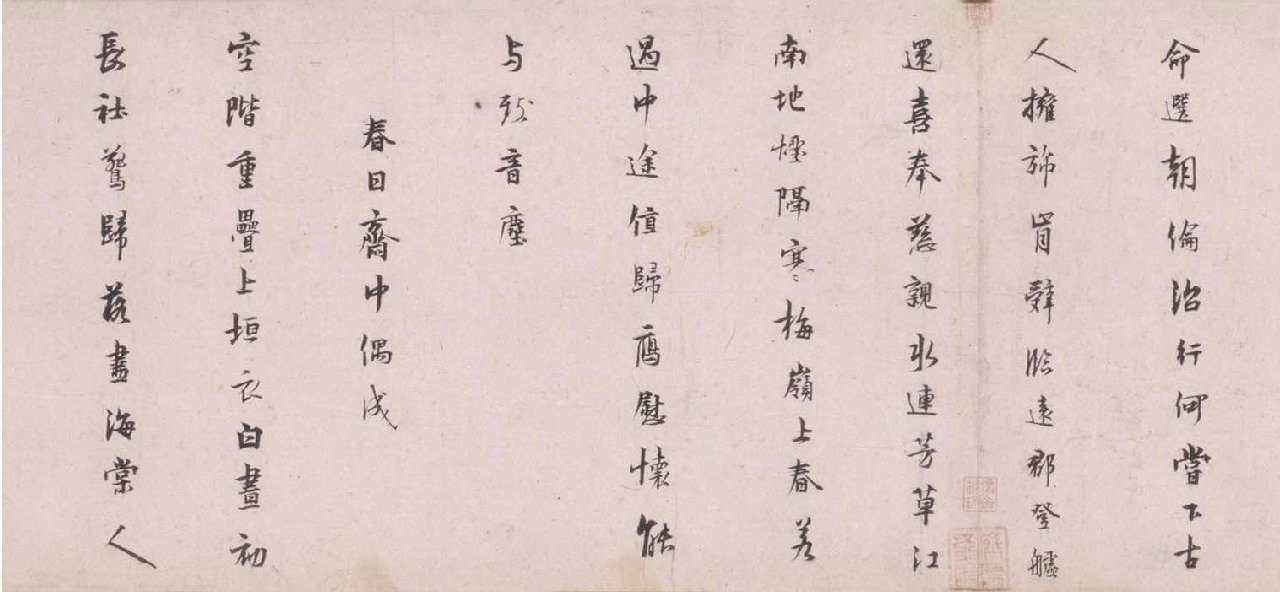 命選朝倫治行何嘗下古
人擁旆肯辭臨遠郡登艫
還喜奉慈親水連芳草江
南地煙隔寒梅嶺上春若
過中途值歸鴈慰懷能
与致音塵
春日齋中偶成
空階重疊上垣衣白晝初
長社鷰歸落盡海棠人